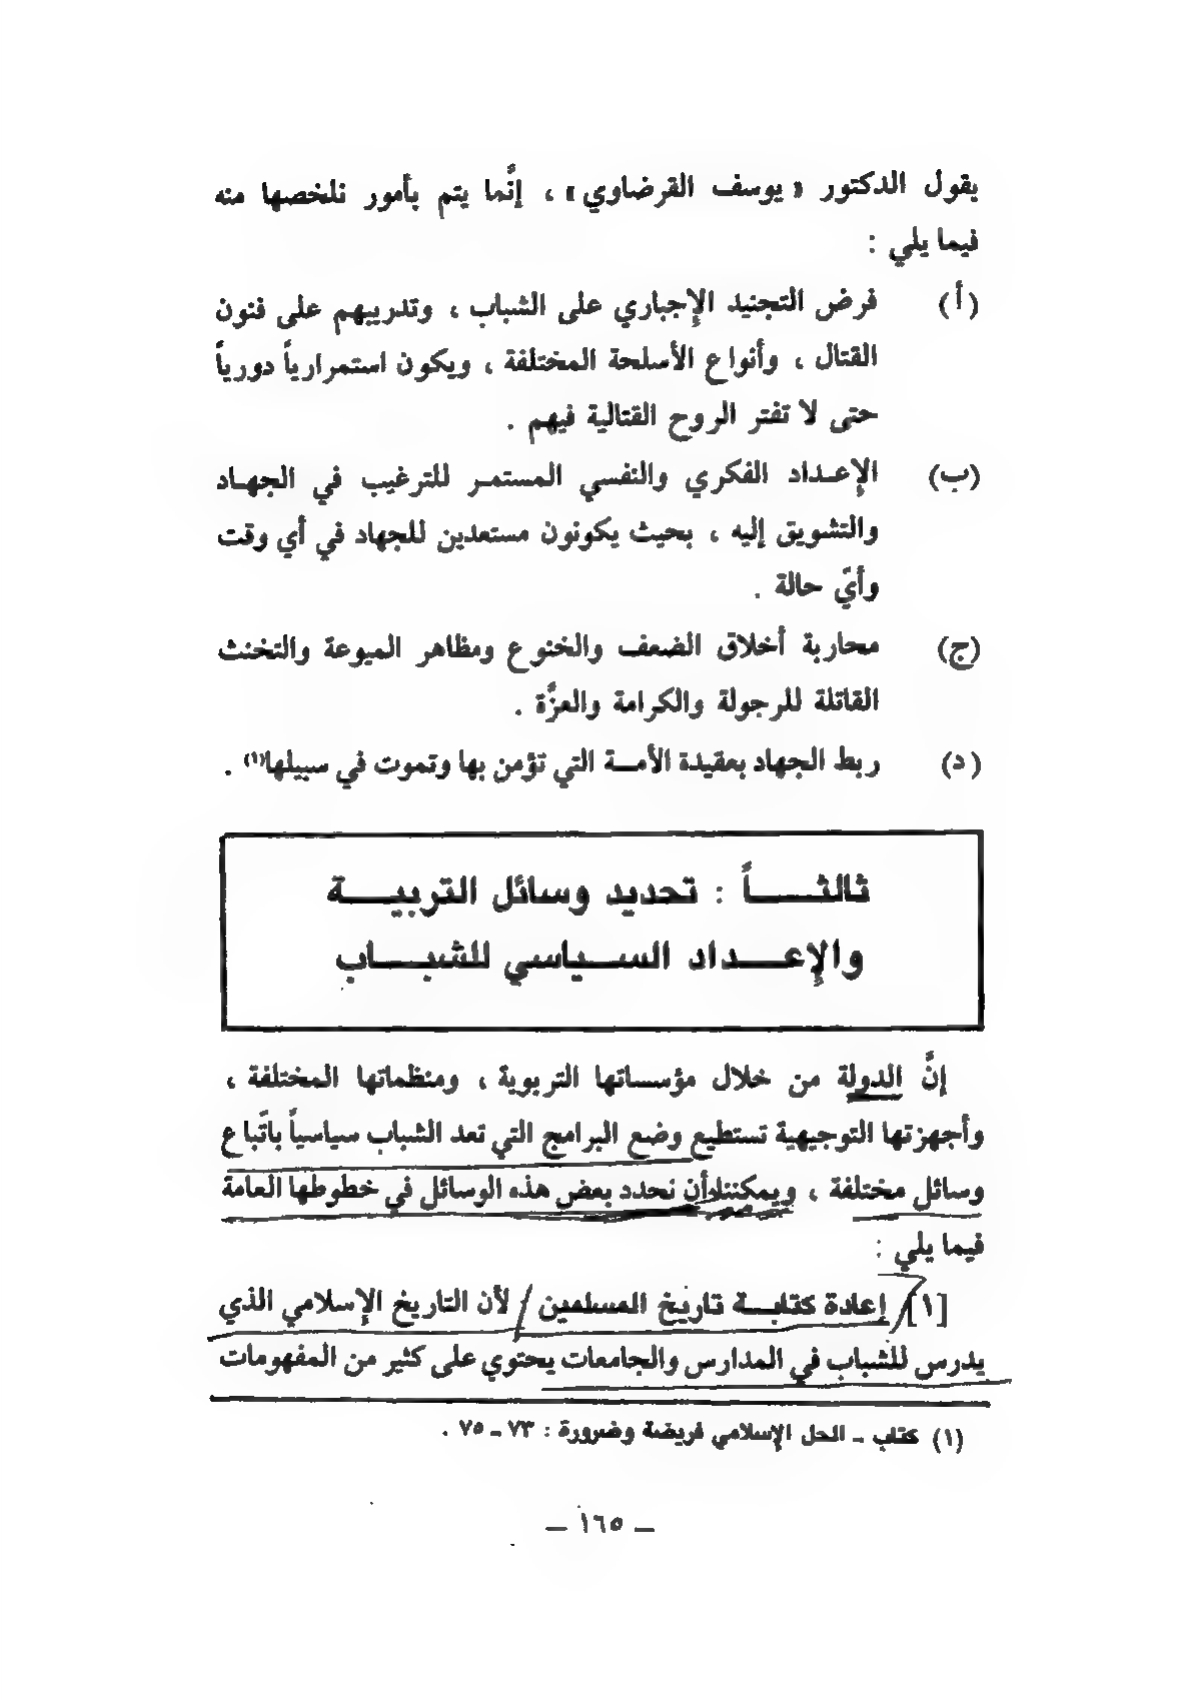 يقول الدكتور « يوسف القرضاوي » ، إنَّما يتم بأمور نلخصها منه
فيما يلي :
(أ) فرض التجنيد الإجباري على الشباب ، وتدريبهم على فنون
القتال ، وأنواع الأسلحة المختلفة ، ويكون استمرارياً دورياً
حتى لا تفتر الروح القتالية فيهم .
(ب) الإعـداد الفكري والنفسي المستمـر للترغيب في الجهـاد
والتشويق إليه ، بحيث يكونون مستعدين للجهاد في أي وقت
وأيّ حالة .
(ج) محاربة أخلاق الضعف والخنوع ومظاهر الميوعة والتخنث
القاتلة للرجولة والكرامة والعزَّة .
(د) ربط الجهاد بعقيدة الأمـة التي تؤمن بها وتموت في سبيلها(١) .
ثالثــــاً : تحديد وسائل التربيـــة
والإعــــداد الســـياسي للشبـــاب
إنَّ الدولة من خلال مؤسساتها التربوية ، ومنظماتها المختلفة ،
وأجهزتها التوجيهية تستطيع وضع البرامج التي تعد الشباب سياسياً باتّباع
وسائل مختلفة ، ويمكننا أن نحدد بعض هذه الوسائل في خطوطها العامة
فيما يلي :
[١] إعادة كتابـة تاريخ المسلمين لأن التاريخ الإسلامي الذي
يدرس للشباب في المدارس والجامعات يحتوي على كثير من المفهومات
(١) كتاب ـ الحل الإسلامي فريضة وضرورة : ٧٣ ـ ٧٥ .
ـ ١٦٥ ـ